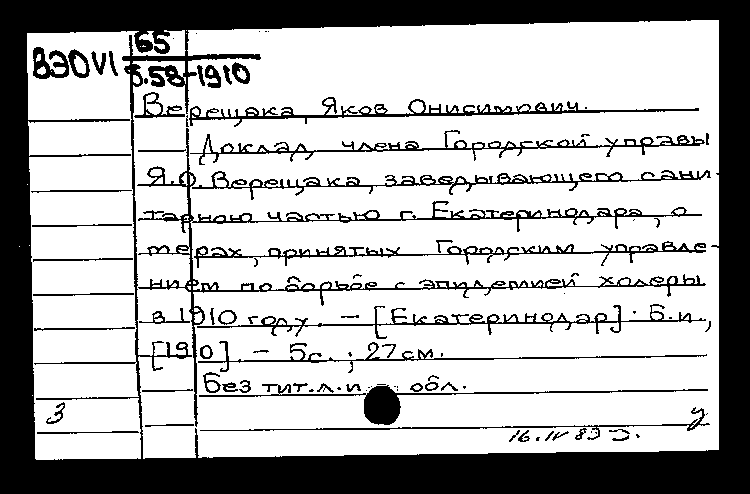 ВЭОVI 165
5.58-1910
Верещака, Яков Онисимович.
Доклад члена Городской управы
Я.О. Верещака, заведывающего сани-
тарною частью г. Екатеринодара, о
мерах, принятых Городским управле-
нием по борьбе с эпидемией холеры
в 1910 году. – [Екатеринодар]: Б.и.,
[1910]. – 5с.; 27см.
Без тит.л. и обл.
3 у
16.IV 83